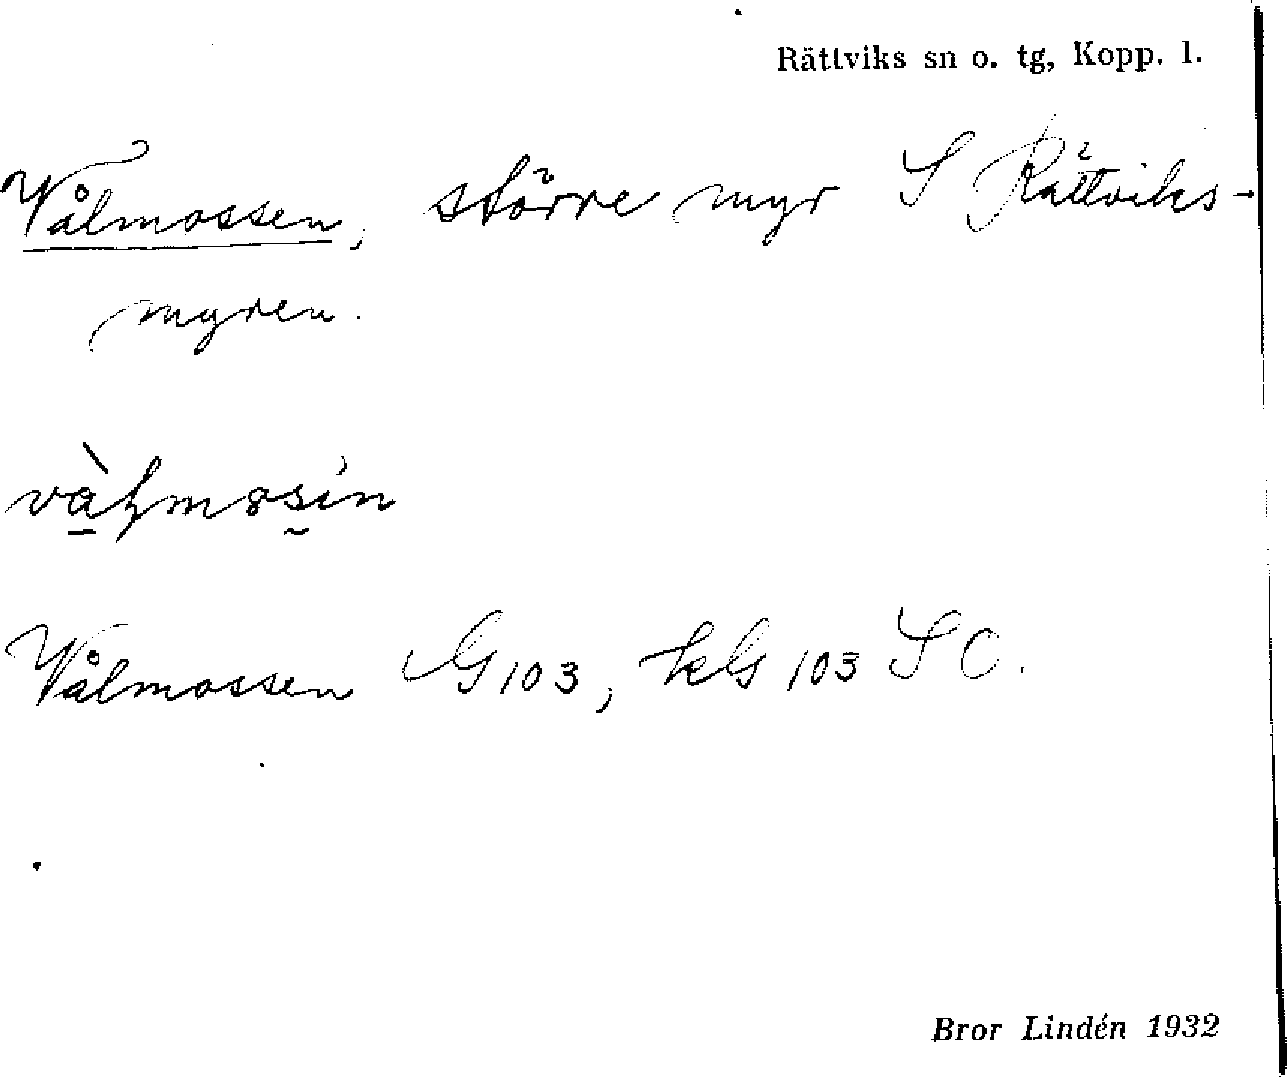 Rättviks sn o. tg, Kopp. l.
Vålmossen, större myr S Rättviks-
myren.
Vålmossen G 103, kG 103 SO.
Bror Lindén 1932